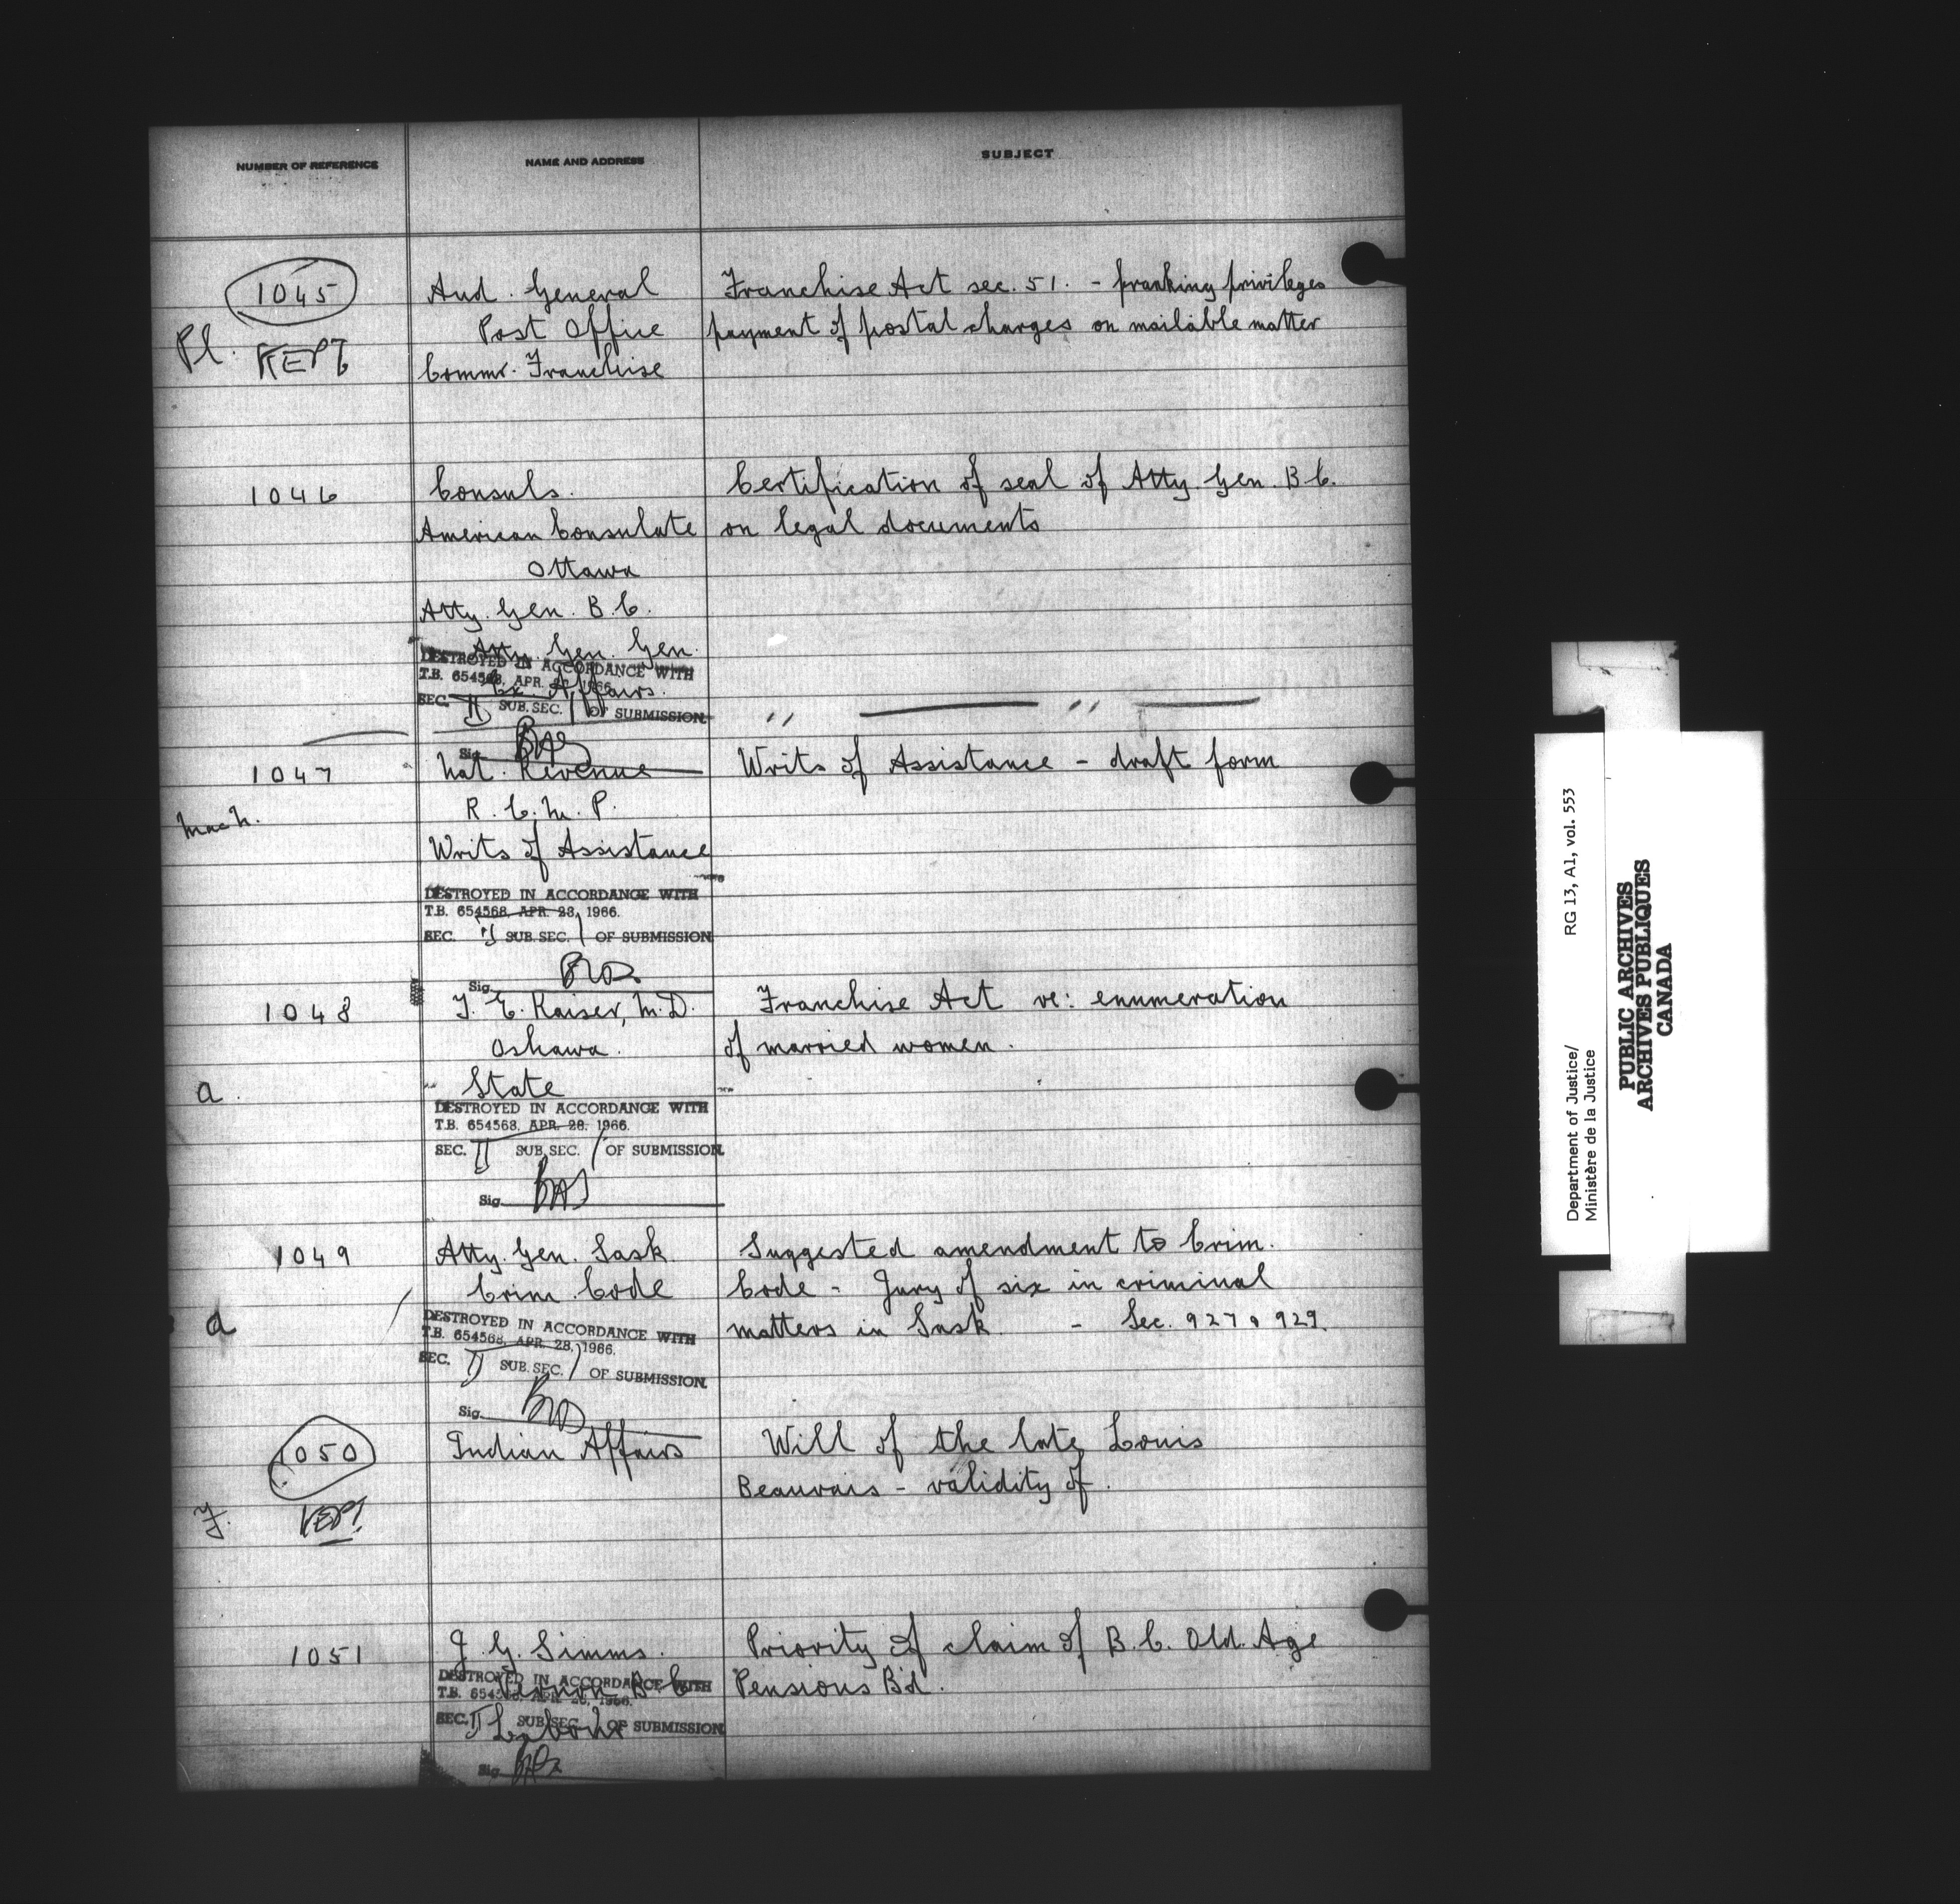 NUMBER OF REFERENCE NAME AND ADDRESS SUBJECT
1045 Aud. General Franchise Act sec. 51. - franking privileges
Post Office payment of postal charges on mailable matter
Pl. KEPT Commr. Franchise
1046 Consuls. Certification of seal of Atty. Gen. B.C.
American Consulate on legal documents
Ottawa
Atty. Gen. B.C.
Atty. Gen. Gen.
DESTROYED IN ACCORDANCE WITH
T.B. 654568, APR. 28, 1966.
Ex. Affairs.
SEC. II SUB. SEC. 1 OF SUBMISSION
" "
Sig.
1047 Nat. Revenue Writs of Assistance - draft form
R.C.M.P.
Mach.
Writs of Assistance
DESTROYED IN ACCORDANCE WITH
T.B. 654568, APR. 28, 1966.
SEC. II SUB. SEC. 1 OF SUBMISSION
Sig.
1048 T. E. Kaiser, M.D. Franchise Act re: enumeration
Oshawa. of married women.
a. State
DESTROYED IN ACCORDANCE WITH
T.B. 654568, APR. 28, 1966.
SEC. II SUB. SEC. 1 OF SUBMISSION
Sig.
1049 Atty. Gen. Sask. Suggested amendment to Crim.
Crim. Code Code - Jury of six in criminal
a matters in Sask. - Sec. 927 & 929.
DESTROYED IN ACCORDANCE WITH
T.B. 654568, APR. 28, 1966.
SEC. II SUB. SEC. 1 OF SUBMISSION
Sig.
1050 Indian Affairs Will of the late Louis
Beauvais - validity of.
F. KEPT
1051 J. G. Simms. Priority of claim of B.C. Old Age
Vernon B.C. Pensions Bd.
DESTROYED IN ACCORDANCE WITH
T.B. 654568, APR. 28, 1966.
SEC. II SUB. SEC. OF SUBMISSION
Labour
Sig.
Department of Justice/ RG 13, A1, vol. 553
Ministère de la Justice
PUBLIC ARCHIVES
ARCHIVES PUBLIQUES
CANADA